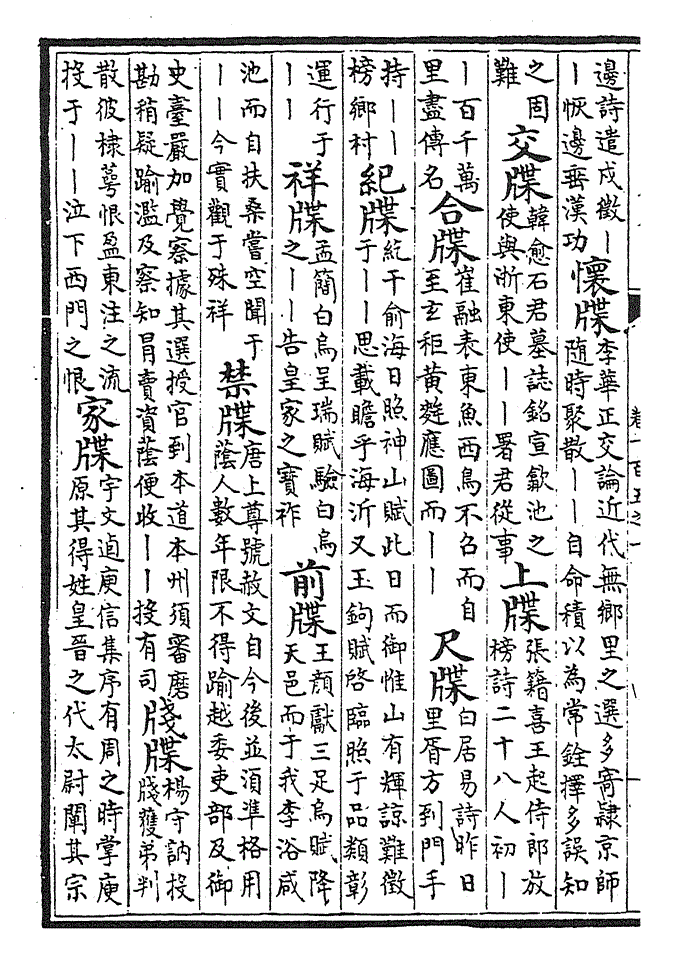 卷一百五之一
邊詩遣戍徵丨丨恢邊垂漢功 懷牒 李華正交論近代無鄉里之選多寄隸京師隨時聚散丨丨自命積以為常銓擇多誤知
之固難 交牒 韓愈石君墓誌銘宣歙池之使與浙東使丨丨署君從事 上牒 張籍喜王起侍郎放榜詩二十八人初丨
丨百千萬里盡傳名 合牒 崔融表東魚西鳥不召而自至玄秬黃麰應圖而丨丨 尺牒 白居易詩昨日里胥方到門手
持丨丨榜鄉村 紀牒 紇干俞海日照神山賦此日而御惟山有輝諒難徵于丨丨思載瞻乎海沂又玉鉤賦啓臨照于品類彰
運行于丨丨 祥牒 孟簡白烏呈瑞賦驗白烏之丨丨告皇家之寶祚 前牒 王顏獻三足烏賦降天邑而于我李浴咸
池而自扶桑嘗空聞于丨丨今實觀于殊祥 禁牒 唐上尊號赦文自今後並須準格用蔭人數年限不得踰越委吏部及御
史臺嚴加覺察據其選授官到本道本州須審磨勘稍疑踰濫及察知冐賣資蔭便收丨丨投有司 牋牒 楊守訥投牋獲弟判
散彼棣萼恨盈東注之流投于丨丨泣下西門之恨 家牒 宇文逌庾信集序有周之時掌庾原其得姓皇晉之代太尉闡其宗